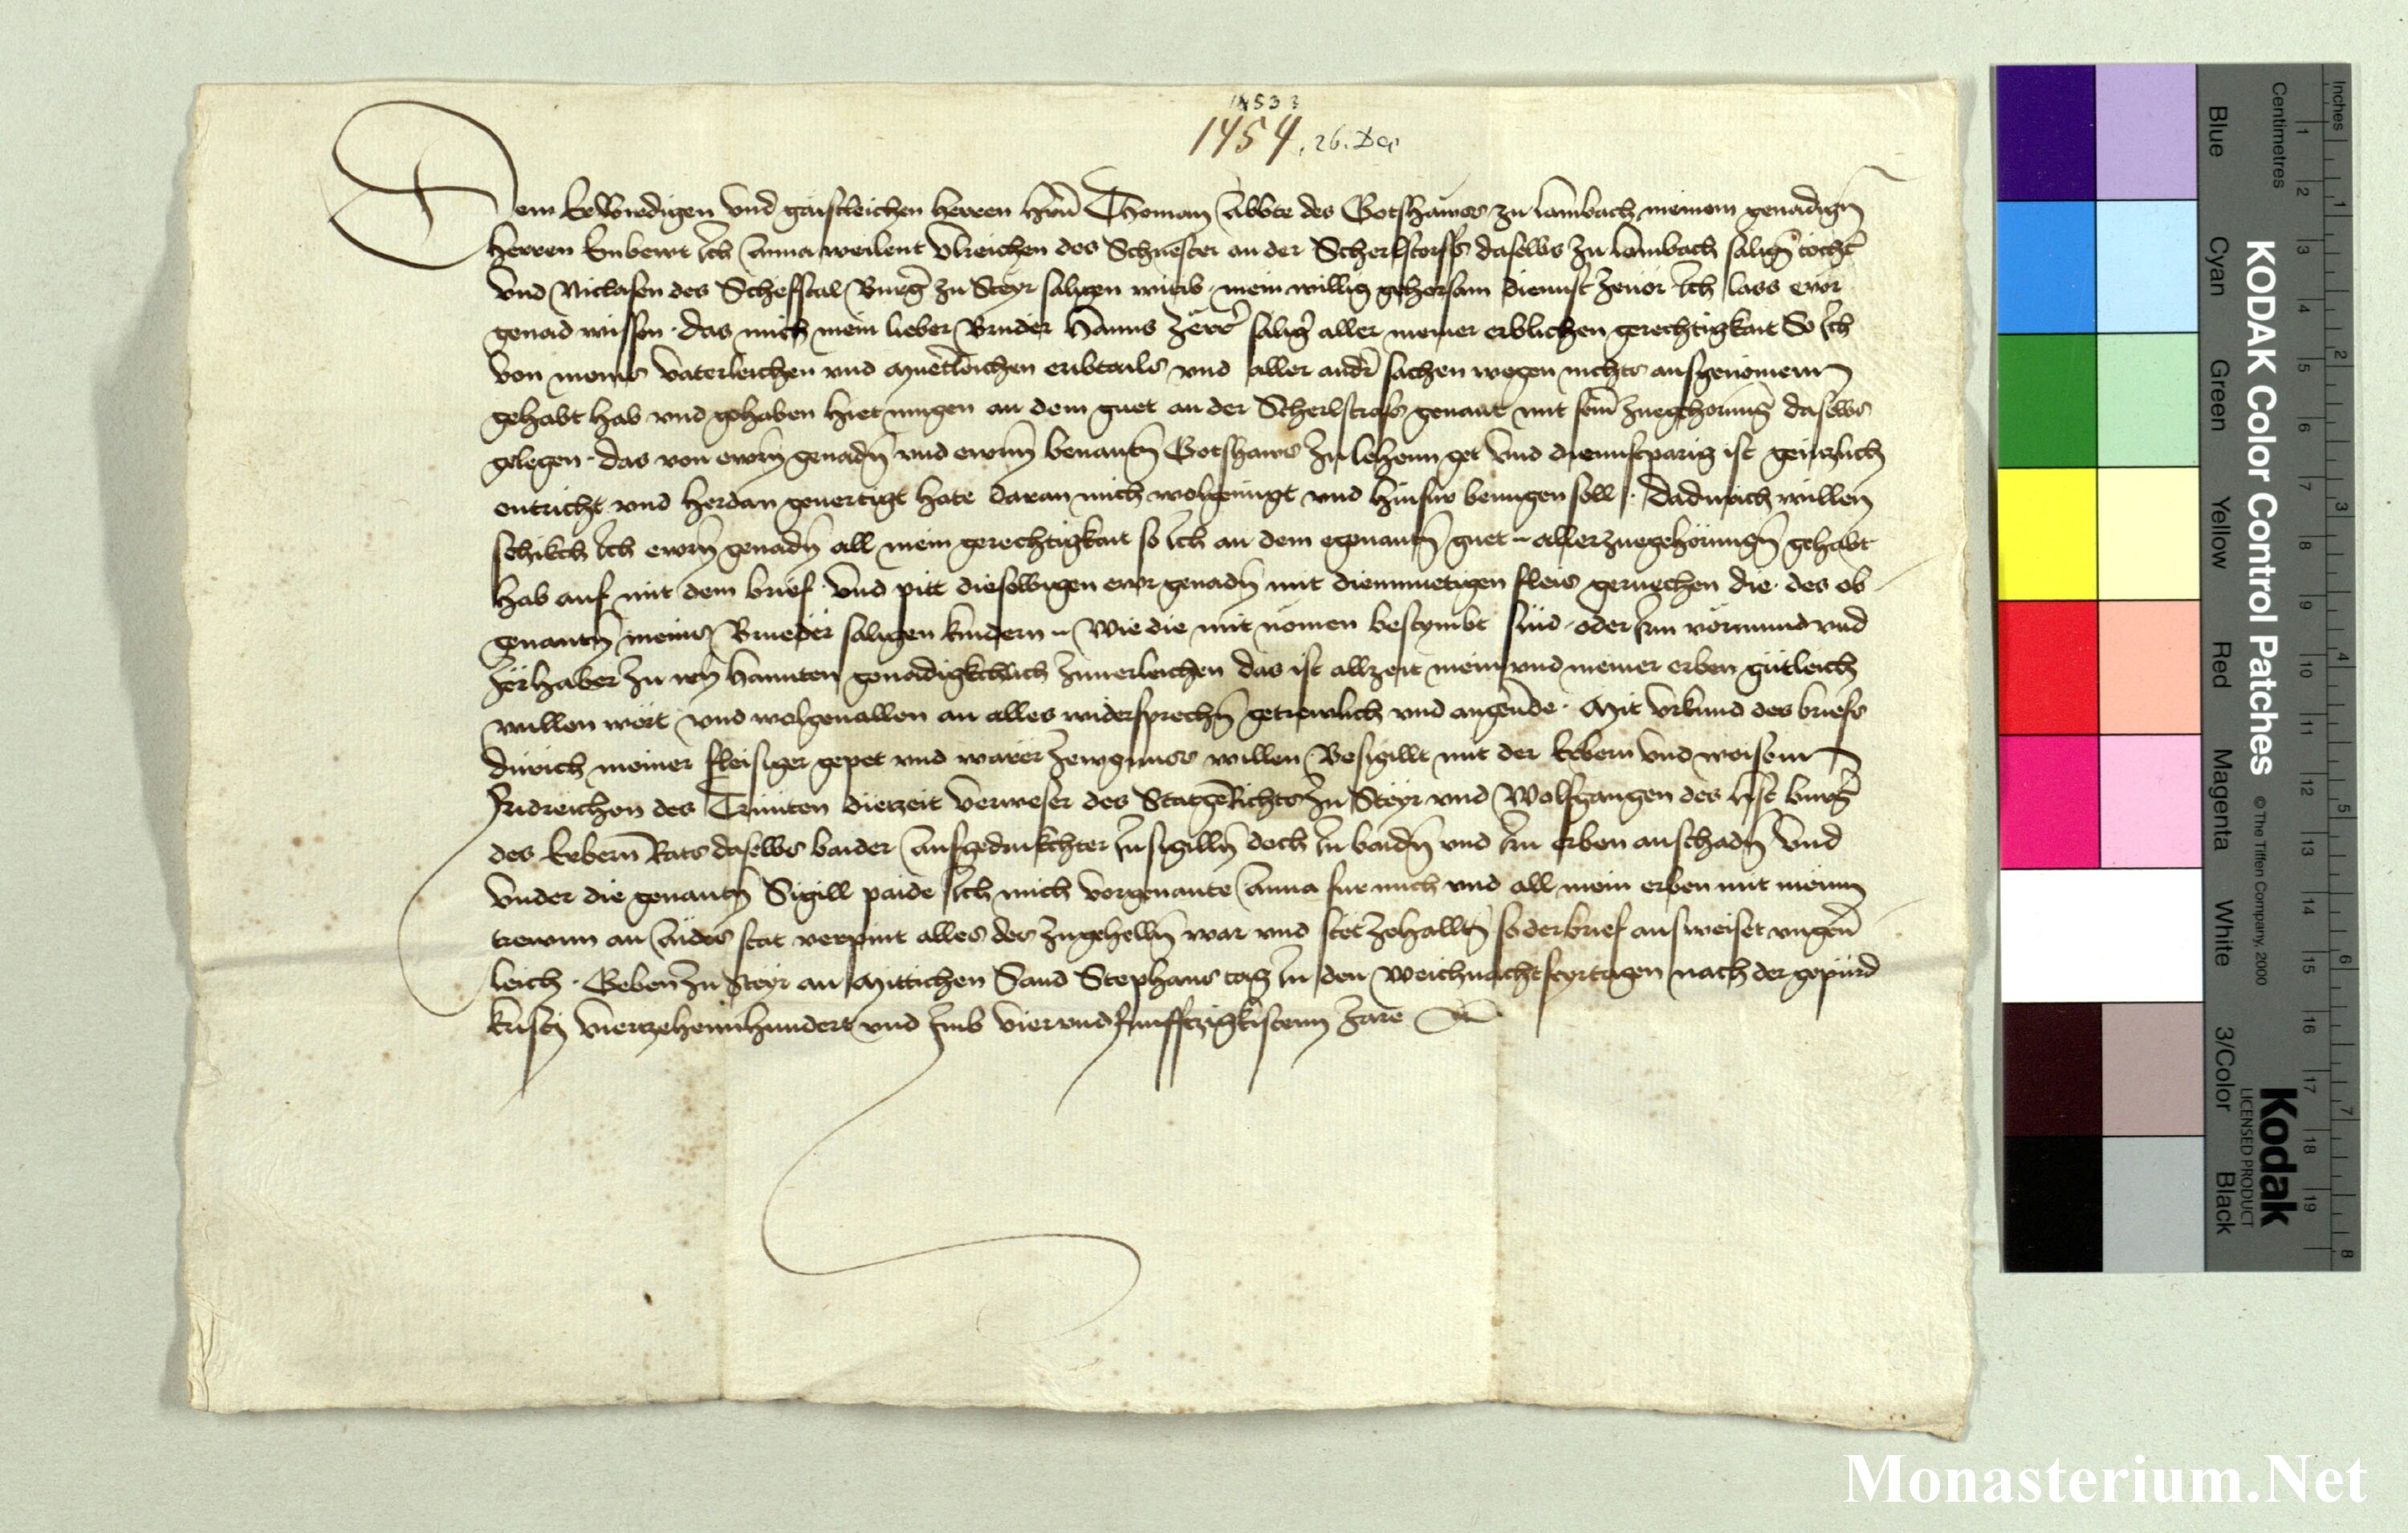 1453 3
1454. 26. Dec
Dem Erwirdigen vnd gaistleichen herren hern Thoman Abbte des Gotshawss zu Lambach meinem genadign
herren Enbewt Ich Anna weilent Vlreichen des Schuester an der Scherlstorss daselbs zu Lambach salign tocht
vnd Niclasen des Schefftal Burg zu Steyr saligen witib mein willig gehorsam diennst zeuor Ich lass ewr
genad wissen · das mich mein lieber Bruder Hanns salig aller meiner erblichen gerechtigkait So Ich
von meins vaterleichen vnd muetleichen eribtails vnd aller andr sachen wegen nichts ausgenomenn
gehabt hab vnd gehaben hiet mugen an dem guet an der Scherlstrass genant mit sein zuegehorung daselbs
gelegen · das von ewrn genadn vnd ewrm benantn Gotshaws zu lehenn get vnd diennstparig ist genzlich
entricht vnd herdan geuertigt hate daran mich wolgenugt vnd hinfur benugen soll · Dadurich willen
schikch Ich ewrn genadn all mein gerechtigkait so Ich an dem egenantn guet aller zuegehörungn gehabt
hab auf mit dem brief · vnd pitt dieselbigen ewr genadn mit diemmuetigen fleis geruechen die · des ob
genantn meins Brueder saligen kindern Wie die mit nömen bestymbt sind · oder Irm vormund vnd
zu Iren hannten genadigkchlich zuuerleichen das ist allzeit mein vnd meiner erben gütleich
willen wört vnd wolgeuallen an alles widersprechn getrewlich vnd angeude · Mit vrkund des briefs
durich meiner fleisiger gepet vnd warer zewgnuss willen Besigillt mit der Erbern vnd weisenn
Fridreichen des Trinten dietzeit verweser des StatgeRichts zu Steyr vnd Wolfgangen des burg
des Erbern Rats daselbs baider aufgedrukchter Insigilln doch In baidn vnd Irn erben anschadn vnd
vnder die genantn Sigill paide Ich mich vorgenante Anna fur mich vnd all mein erben mit meinn
trewnn an Aides stat verpint alles des zugehelln war vnd stet zehalltn so der brief ausweiset vngeu
leich · Geben zu Steyr an Mittichen Sand Stephans tag In den Weichnachtfeyrtagen nach der gepurd
kristj vierzehennhundert vnd Imb vier vnd funfftzigkistenn Jare
KODAK Color Control Patches
© The Tiffen Company, 2000
Kodak
LICENSED PRODUCT
Blue
Cyan
Green
Yellow
Red
Magenta
White
3/Color
Black
Centimetres
1
2
3
4
5
6
7
8
9
10
11
12
13
14
15
16
17
18
19
Inches
1
2
3
4
5
6
7
8
Monasterium.Net